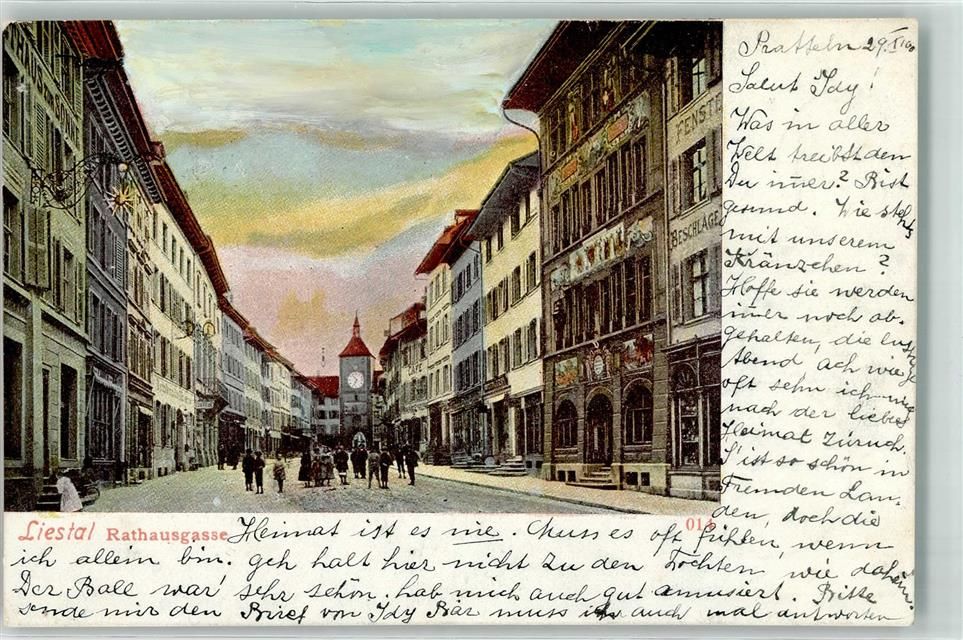 Pratteln 29.
Salut Idy!
Was in aller
Welt treibst denn
Du im̅er? Bist
gesund. Wie steht's
mit unserem
Kränzchen?
Hoffe sie werden
im̅er noch ab.
gehalten, die lustige
Abend ach wie
oft sehn ich mich
nach der lieben
Heimat zurück.
S'ist so schön in
Fremden Lan-
den, doch die
Heimat ist es nie. Muss es oft fühlen, wenn
ich allein bin. geh halt hier nicht zu den Töchtern, wie daheim.
Der Ball war' sehr schön. hab mich auch gut amusiert. Bitte
sende mir den Brief von Idy Bär muss ihr auch mal antworten
Liestal Rathausgasse
011
FENSTE
BESCHLÄGE